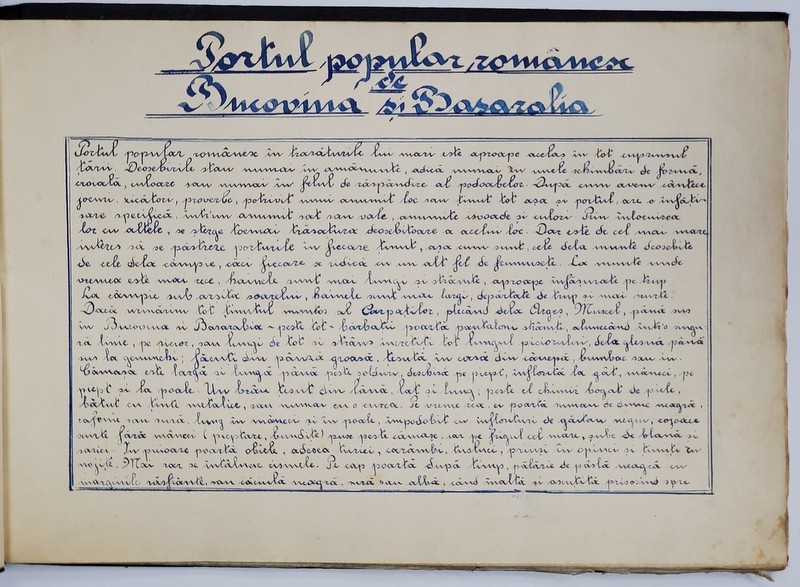 Portul popular românesc
de
Bucovina și Basarabia
Portul popular românesc în trăsăturile lui mari este aproape acelaș în tot cuprinsul
țării. Deosebirile stau numai în amănunte, adică numai în unele schimbări de formă,
croială, culoare sau numai în felul de răspândire al podoabelor. După cum avem cântece
jocuri, zicători, proverbe, potrivit unui anumit loc sau ținut tot așa și portul, are o înfăți-
șare specifică, într'un anumit sat sau vale, anumite isvoade și culori. Prin înlocuirea
lor cu altele, se șterge tocmai trăsătura deosebitoare a acelui loc. Dar este de cel mai mare
interes să se păstreze porturile în fiecare ținut, așa cum sunt, cele dela munte deosebite
de cele dela câmpie, căci fiecare se ridică cu un alt fel de frumusețe. La munte unde
vremea este mai rece, hainele sunt mai lungi și strâmte, aproape înfășurate pe trup.
La câmpie sub arșița soarelui, hainele sunt mai largi, depărtate de trup și mai scurte.
Dacă urmărim tot ținutul muntos al Carpaților, plecând dela Argeș, Muscel, până sus
în Bucovina și Basarabia - peste tot - bărbații poartă pantaloni strâmți, alunecând într'o singu-
ră linie, pe picior, sau lungi de tot și strâns încrețiți tot lungul piciorului, dela glesnă până
sus la genunchi; făcuți din pânză groasă, țesută în casă din cânepă, bumbac sau in.
Cămașa este largă și lungă până peste șolduri, deschisă pe piept, înflorită la gât, mâneci, pe
piept și la poale. Un brâu țesut din lână, lat și lung; peste el chimir bogat de piele,
bătut cu ținte metalice, sau numai cu o curea. Pe vreme rea, ei poartă suman de dimie neagră,
cafenie sau sură, lung în mâneci și în poale, împodobit cu înflorituri de găitan negru, cojoace
scurte fără mâneci (pieptare, bundițe) puse peste cămașe, iar pe frigul cel mare, șube de blană și
sarici. În picioare poartă obiele, adesea turici, carâmbi, tuslici, prinși în opinci și ținuți cu
nojițe. Mai rar se întâlnesc cismele. Pe cap poartă după timp, pălărie de pâslă neagră cu
marginile răsfrânte, sau căciulă neagră, sură sau albă, când înaltă și ascuțită prisosind spre